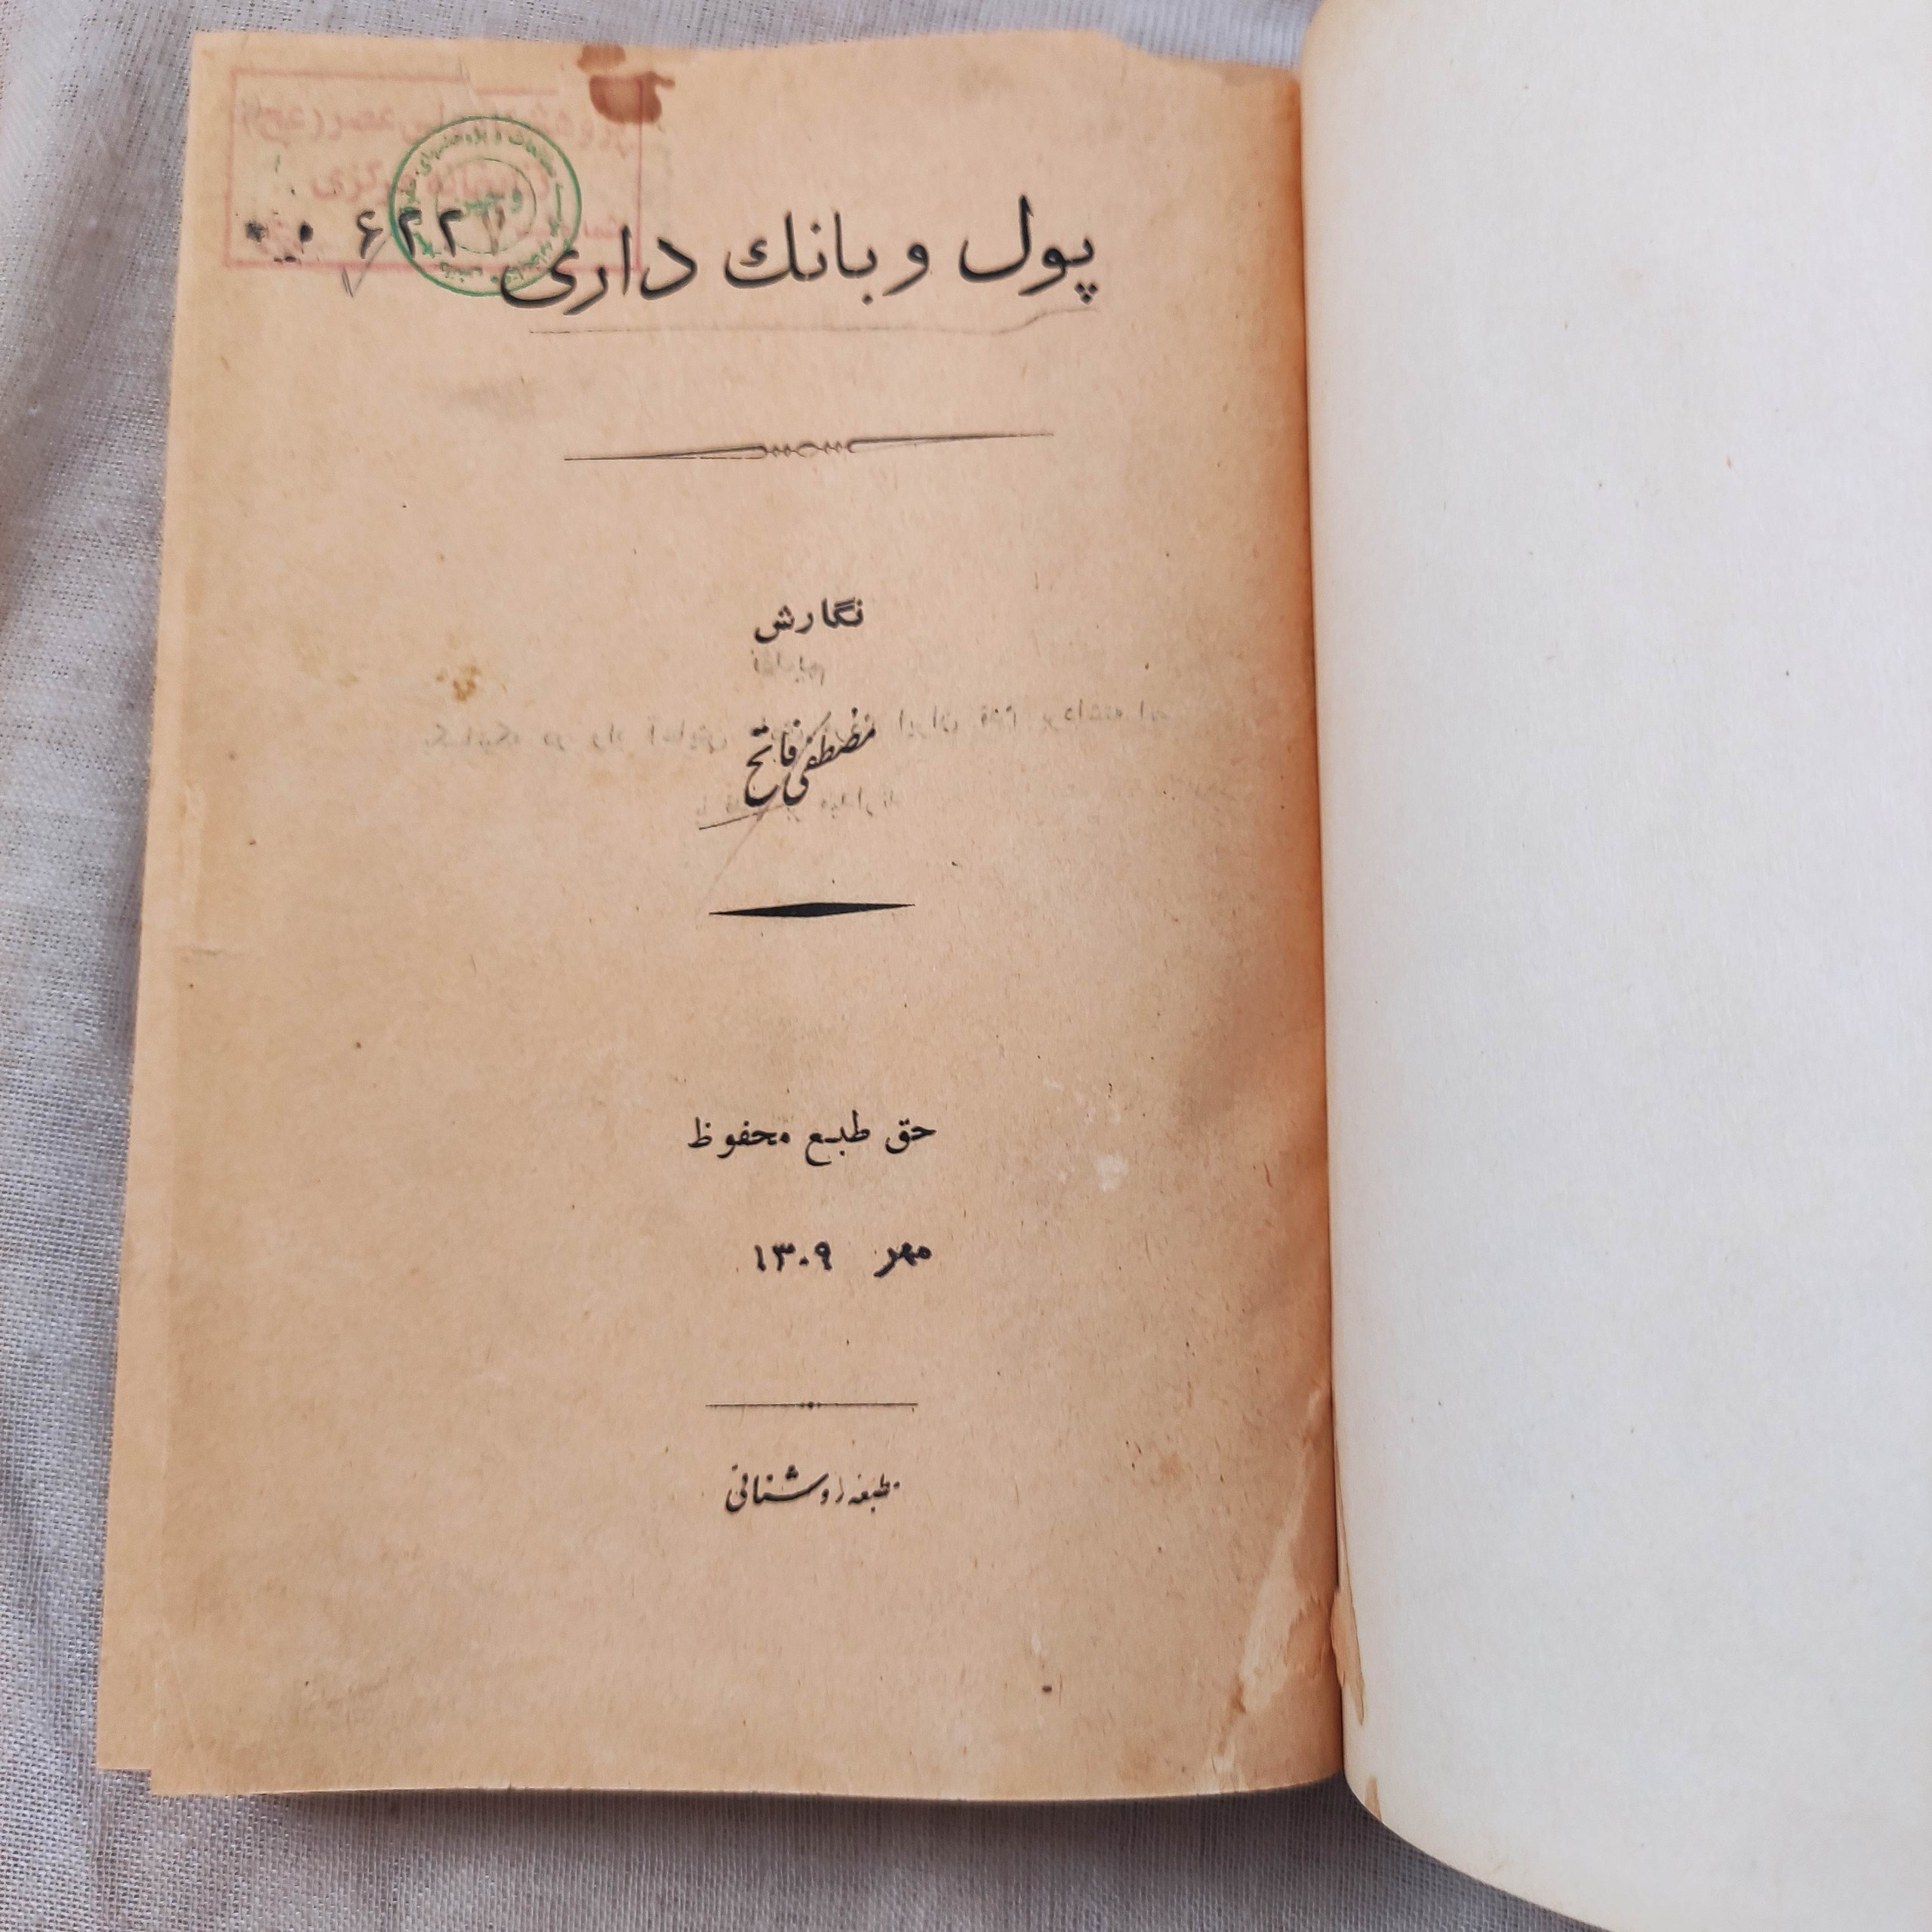 عصر (عج)
مرکزی
۰۰۶۲۲
پول و بانك داری
نگارش
مصطفی فاتح
حق طبع محفوظ
مهر ۱۳۰۹
مطبعه روشنائی